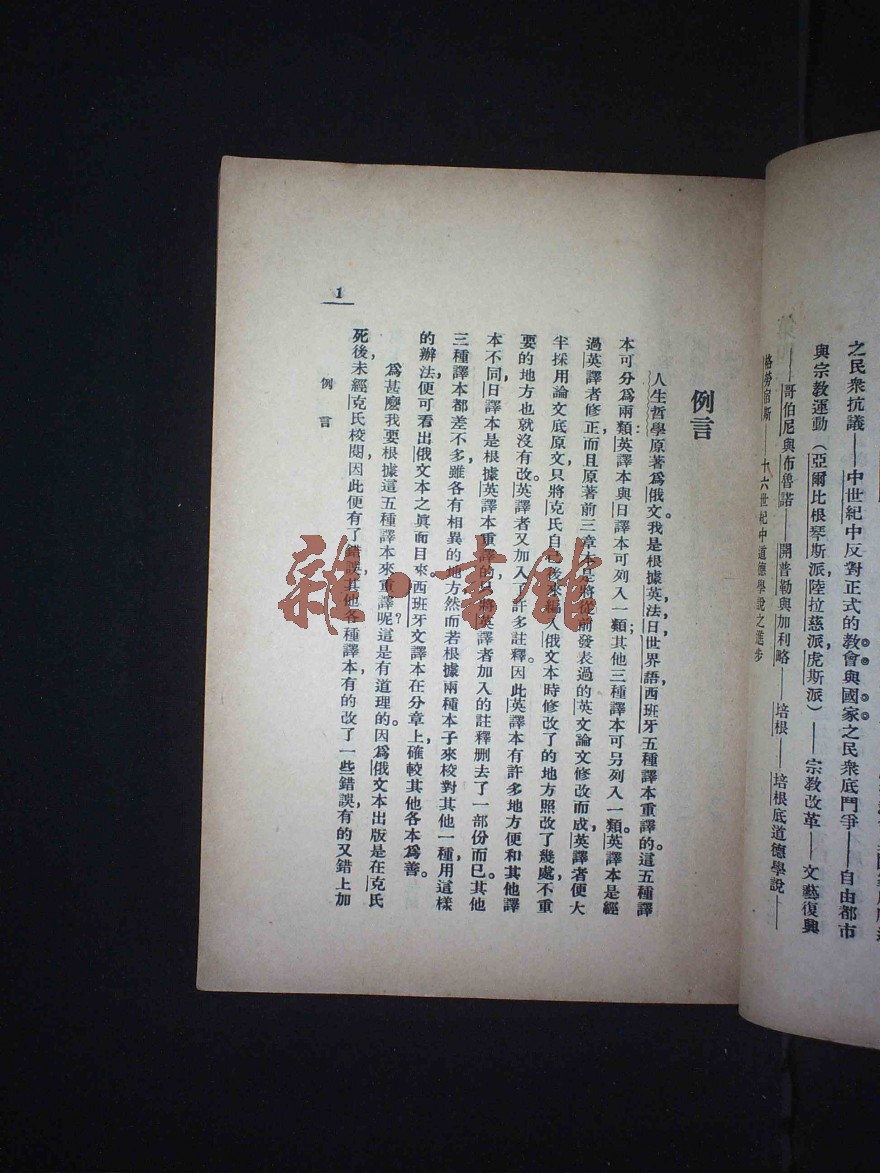 之民衆抗議——中世紀中反對正式的教會與國家之民衆底鬥爭——自由都市
與宗教運動（亞爾比根琴斯派，陸拉慈派，虎斯派）——宗教改革——文藝復興
——哥伯尼與布魯諾——開普勒與加利略——培根——培根底道德學說——
格勞宿斯——十六世紀中道德學說之進步
例言
人生哲學原著爲俄文。我是根據英，法，日，世界語，西班牙五種譯本重譯的。這五種譯
本可分爲兩類：英譯本與日譯本可列入一類；其他三種譯本可另列入一類。英譯本是經
過英譯者修正，而且原著前三章本是將從前發表過的英文論文修改而成，英譯者便大
半採用論文底原文，只將克氏自己後來編入俄文本時修改了的地方照改了幾處，不重
要的地方也就沒有改。英譯者又加入了許多註釋。因此英譯本有許多地方便和其他譯
本不同。日譯本是根據英譯本重譯的，只將英譯者加入的註釋删去了一部份而已。其他
三種譯本都差不多，雖各有相異的地方，然而若根據兩種本子來校對其他一種，用這樣
的辦法，便可看出俄文本之眞面目來。西班牙文譯本在分章上，確較其他各本爲善。
爲甚麽我要根據這五種譯本來重譯呢？這是有道理的。因爲俄文本出版是在克氏
死後，未經克氏校閱，因此便有了錯誤，其他各種譯本有的改了一些錯誤，有的又錯上加
例言
1
雜·書館